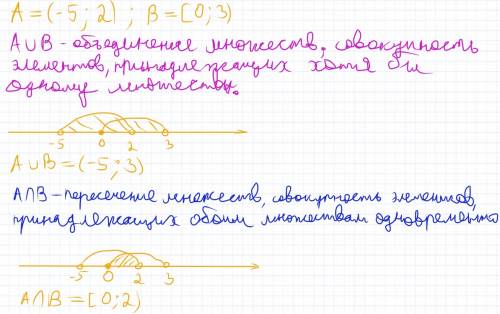 A = (-5; 2) ; B = [0; 3)
A∪B - объединение множеств, совокупность
элементов, принадлежащих хотя бы
одному множеству.
-5 0 2 3
A∪B = (-5; 3)
A∩B - пересечение множеств, совокупность элементов,
принадлежащих обоим множествам одновременно
-5 0 2 3
A∩B = [0; 2)